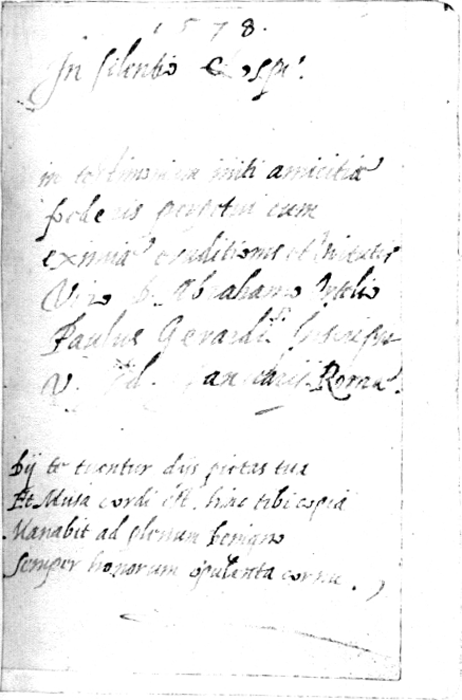 1578.
In silentio et spe.
in testimonium initi amicitiae
foederis perpetui cum
eximiae eruditionis et
Viro D. Abrahamo Ortelio
Paulus Gerardi
V. Id. Januarii Romae.
Dij te tuentur dijs pietas tua
Et Musa cordi est. hinc tibi copia
Manabit ad plenum benigno
Semper honorum opulenta cornu.